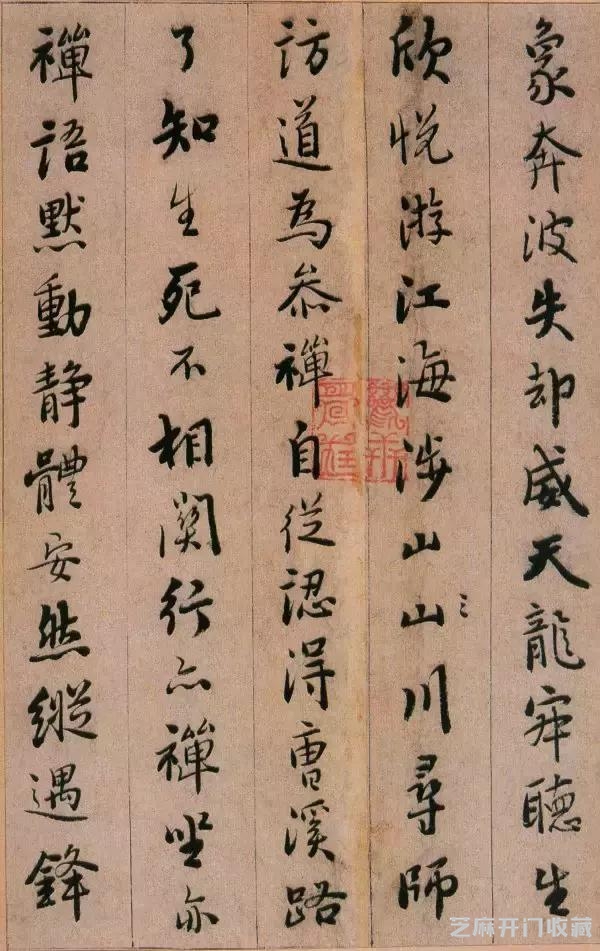 象奔波失却威天龍寂聽生
欣悅游江海涉山山川尋師
訪道為叅禪自從認得曹溪路
了知生死不相関行亦禪坐亦
禪語默動静體安然縱遇鋒
芝麻开门收藏